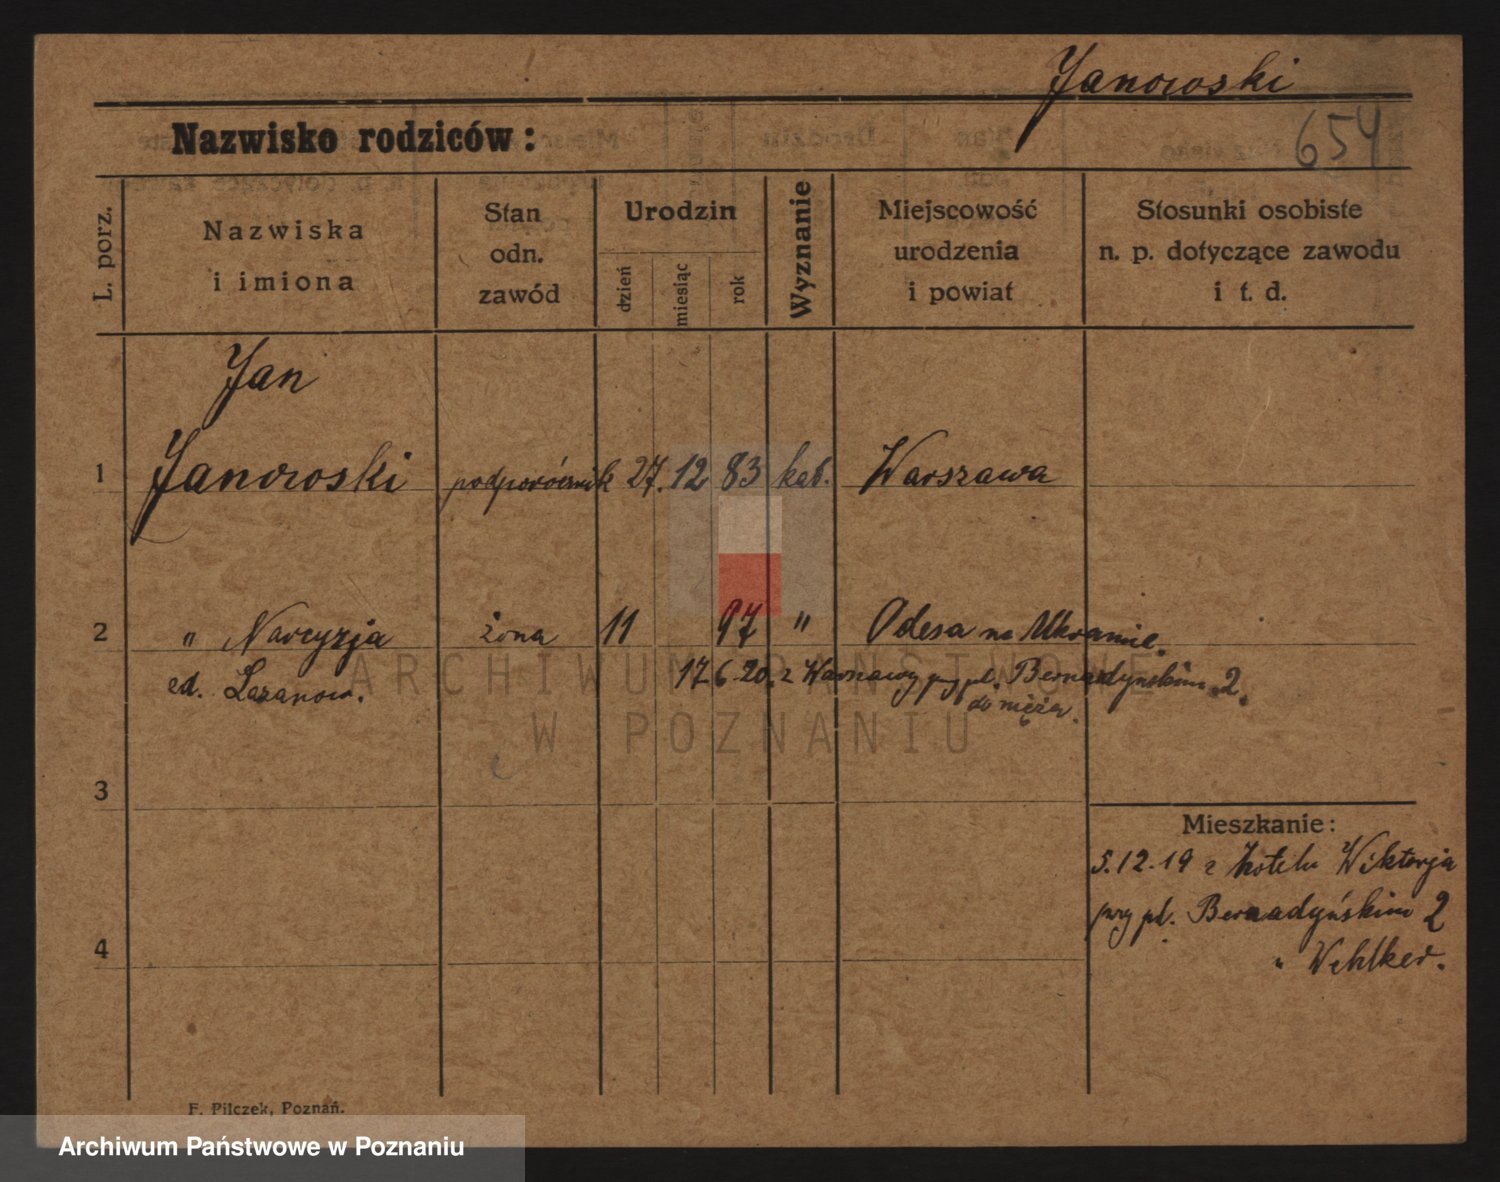 Janowski
654
Nazwisko rodziców:
L. porz.
Nazwiska
i imiona
Stan
odn.
zawód
Urodzin
dzień
miesiąc
rok
Wyznanie
Miejscowość
urodzenia
i powiat
Stosunki osobiste
n. p. dotyczące zawodu
i t. d.
Jan
1 Janowski podporócznik 27. 12 83 kat. Warszawa
2 " Narcyzja żona 11 97 " Odesa na Ukrainie.
17 6 20. z Warszawy przy pl. Bernadyńskim 2.
do męża.
ARCHIWUM PAŃSTWOWE
W POZNANIU
3
Mieszkanie:
5.12.19 z Hotelu Wiktorja
przy pl. Bernadyńskim 2
4
F. Pilczek, Poznań.
Archiwum Państwowe w Poznaniu